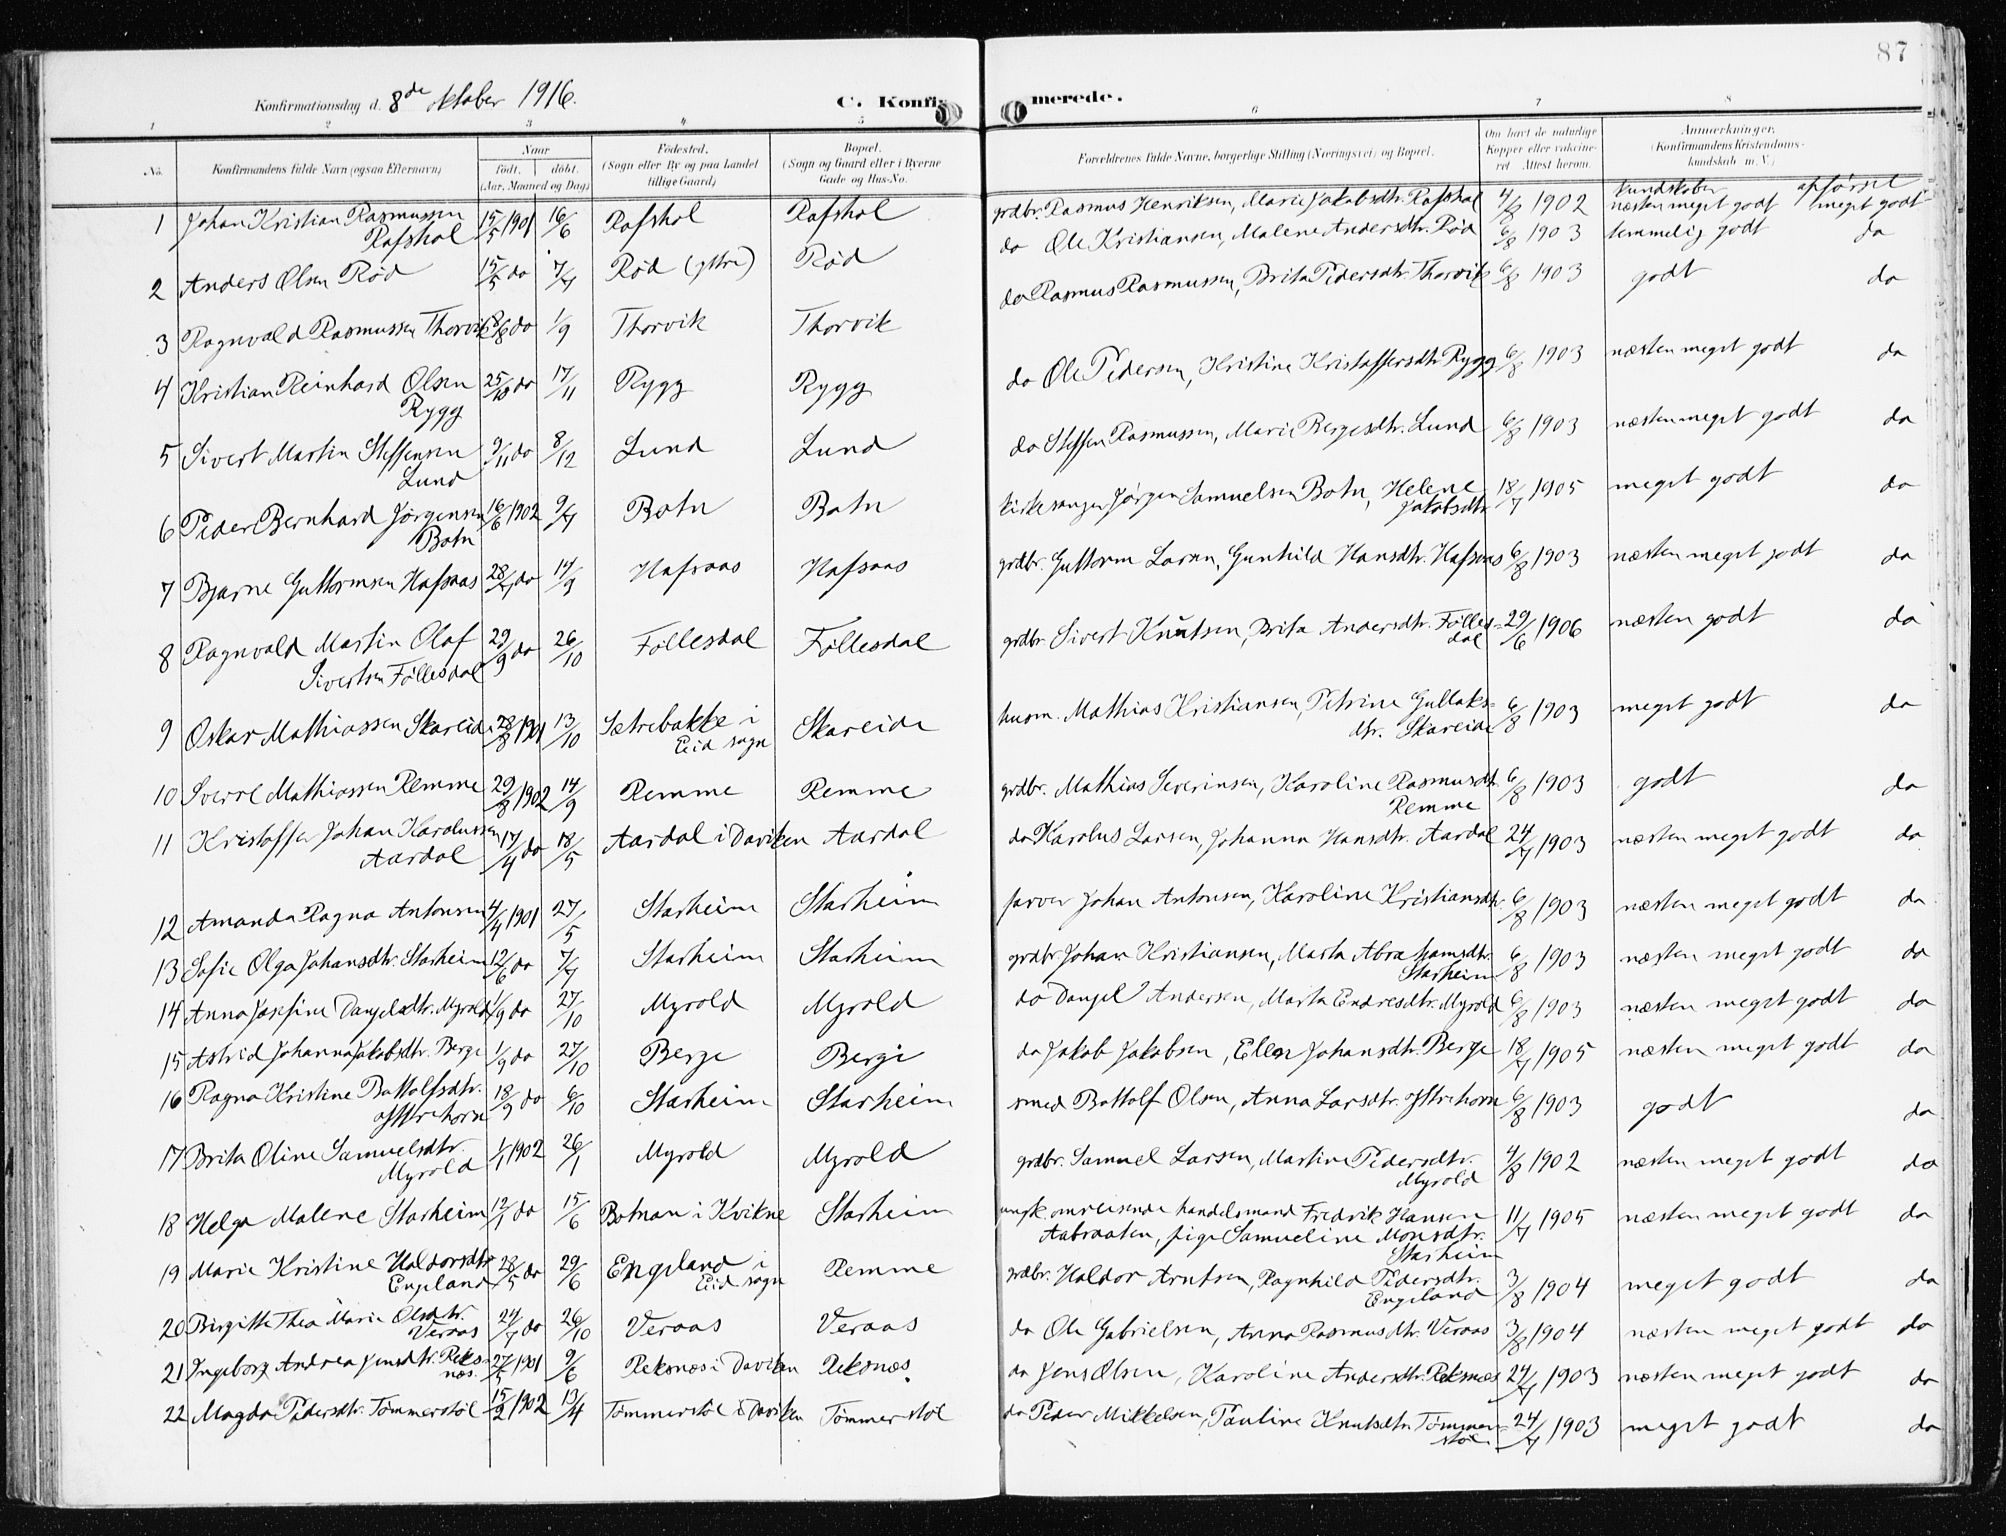 87
Konfirmationsdag d. 8de oktober 1916.
C. Konfirmerede.
1 2 3 4 5 6 7 8
No. Konfirmandens fulde Navn (ogsaa Efternavn) Naar født. døbt. (Aar, Maaned og Dag) Fødested. (Sogn eller By og paa Landet tillige Gaard) Bopæl. (Sogn og Gaard eller i Byerne Gade og Hus-No. Forældrenes fulde Navne, borgerlige Stilling (Næringsvei) og Bopæl. Om havt de naturlige Kopper eller vakcineret Attest herom. Anmærkninger. (Konfirmandens Kristendomskundskab m. V.)
kundskaber opførsel
1 Johan Kristian Rasmussen Rafshol 15/5 1901 16/6 Rafshol Rafshol grdbr. Rasmus Henriksen, Marie Jakobsdtr. Rafshol 4/8 1902 næsten meget godt meget godt
2 Anders Olsen Rød 15/5 do 7/7 Rød (ytre) Rød do Ole Kristiansen, Malene Andersdtr. Rød 6/8 1903 temmelig godt do
3 Ragnvald Rasmussen Thorvik do 1/9 Thorvik Thorvik do Rasmus Rasmussen, Brita Pedersdtr. Thorvik 6/8 1903 godt do
4 Kristian Reinhard Olsen Rygg 25/10 do 17/11 Rygg Rygg do Ole Pedersen, Kristine Kristoffersdtr. Rygg 6/8 1903 næsten meget godt do
5 Sivert Martin Steffensen Lund 9/11 do 8/12 Lund Lund do Steffen Rasmussen, Marie Bergesdtr. Lund 6/8 1903 næsten meget godt do
6 Peder Bernhard Jørgensen Botn 16/6 1902 9/7 Botn Botn kirkesanger Jørgen Samuelsen Botn, Helene Jakobsdtr. 18/7 1905 meget godt do
7 Bjarne Guttormsen Hafsaas 28/7 do 14/9 Hafsaas Hafsaas grdbr. Guttorm Larsen, Gunhild Hansdtr. Hafsaas 6/8 1903 næsten meget godt do
8 Ragnvald Martin Olaf Sivertsen Føllesdal 29/9 do 26/10 Føllesdal Føllesdal grdbr. Sivert Knutsen, Brita Andersdtr. Føllesdal 29/6 1906 næsten godt do
9 Oskar Mathiassen Skareide 28/8 1901 13/10 Sætrebakke i Eid sogn Skareide husm. Mathias Kristiansen, Petrine Gullaksdtr. Skareide 6/8 1903 meget godt do
10 Sverre Mathiassen Remme 29/8 1902 14/9 Remme Remme grdbr. Mathias Severinsen, Karoline Rasmusdtr. Remme 6/8 1903 godt do
11 Kristoffer Johan Karolussen Aardal 17/4 do 18/5 Aardal i Daviken Aardal do Karolus Larsen, Johanna Hansdtr. Aardal 24/7 1903 næsten meget godt do
12 Amanda Ragna Antonsen 4/4 1901 27/5 Starheim Starheim farver Johan Antonsen, Karoline Kristiansdtr. 6/8 1903 næsten meget godt do
13 Sofie Olga Johansdtr. Starheim 12/6 do 7/7 Starheim Starheim grdbr. Johan Kristiansen, Marta Abrahamsdtr. Starheim 6/8 1903 næsten meget godt do
14 Anna Josefine Danjelsdtr. Myrold 1/9 do 27/10 Myrold Myrold do Danjel Andersen, Marta Endresdtr. Myrold 6/8 1903 næsten meget godt do
15 Astrid Johanna Jakobsdtr. Berge 1/9 do 27/10 Berge Berge do Jakob Jakobsen, Ellen Johansdtr. Berge 18/7 1905 næsten meget godt do
16 Ragna Kristine Bottolfsdtr. Yttrehorn 18/9 do 6/10 Starheim Starheim smed Bottolf Olsen, Anna Larsdtr. Yttrehorn 6/8 1903 godt do
17 Brita Oline Samuelsdtr. Myrold 1/1 1902 26/1 Myrold Myrold grdbr. Samuel Larsen, Martine Pedersdtr. Myrold 4/8 1902 næsten meget godt do
18 Helga Malene Starheim 12/1 do 15/6 Botnan i Kvikne Starheim ungk. omreisende handelsmand Fredrik Hansen Aabraaten, pige Samueline Monsdtr. Starheim 11/7 1905 næsten meget godt do
19 Marie Kristine Haldorsdtr. Engeland 28/5 do 29/6 Engeland i Eid sogn Remme grdbr. Haldor Arntsen, Ragnhild Pedersdtr. Engeland 3/8 1904 meget godt do
20 Birgitte Thea Marie Olsdtr. Veraas 24/7 do 26/10 Veraas Veraas do Ole Gabrielsen, Anna Rasmusdtr. Veraas 3/8 1904 næsten meget godt do
21 Ingeborg Andrea Jensdtr. Reksnæs. 27/5 1901 9/6 Reksnæs i Daviken Reksnæs. do Jens Olsen, Karoline Andersdtr. Reksnæs 24/7 1903 næsten meget godt do
22 Magda Pedersdtr. Tømmerstøl 15/2 1902 13/4 Tømmerstøl i Daviken Tømmerstøl do Peder Mikkelsen, Pauline Knutsdtr. Tømmerstøl 24/7 1903 meget godt do